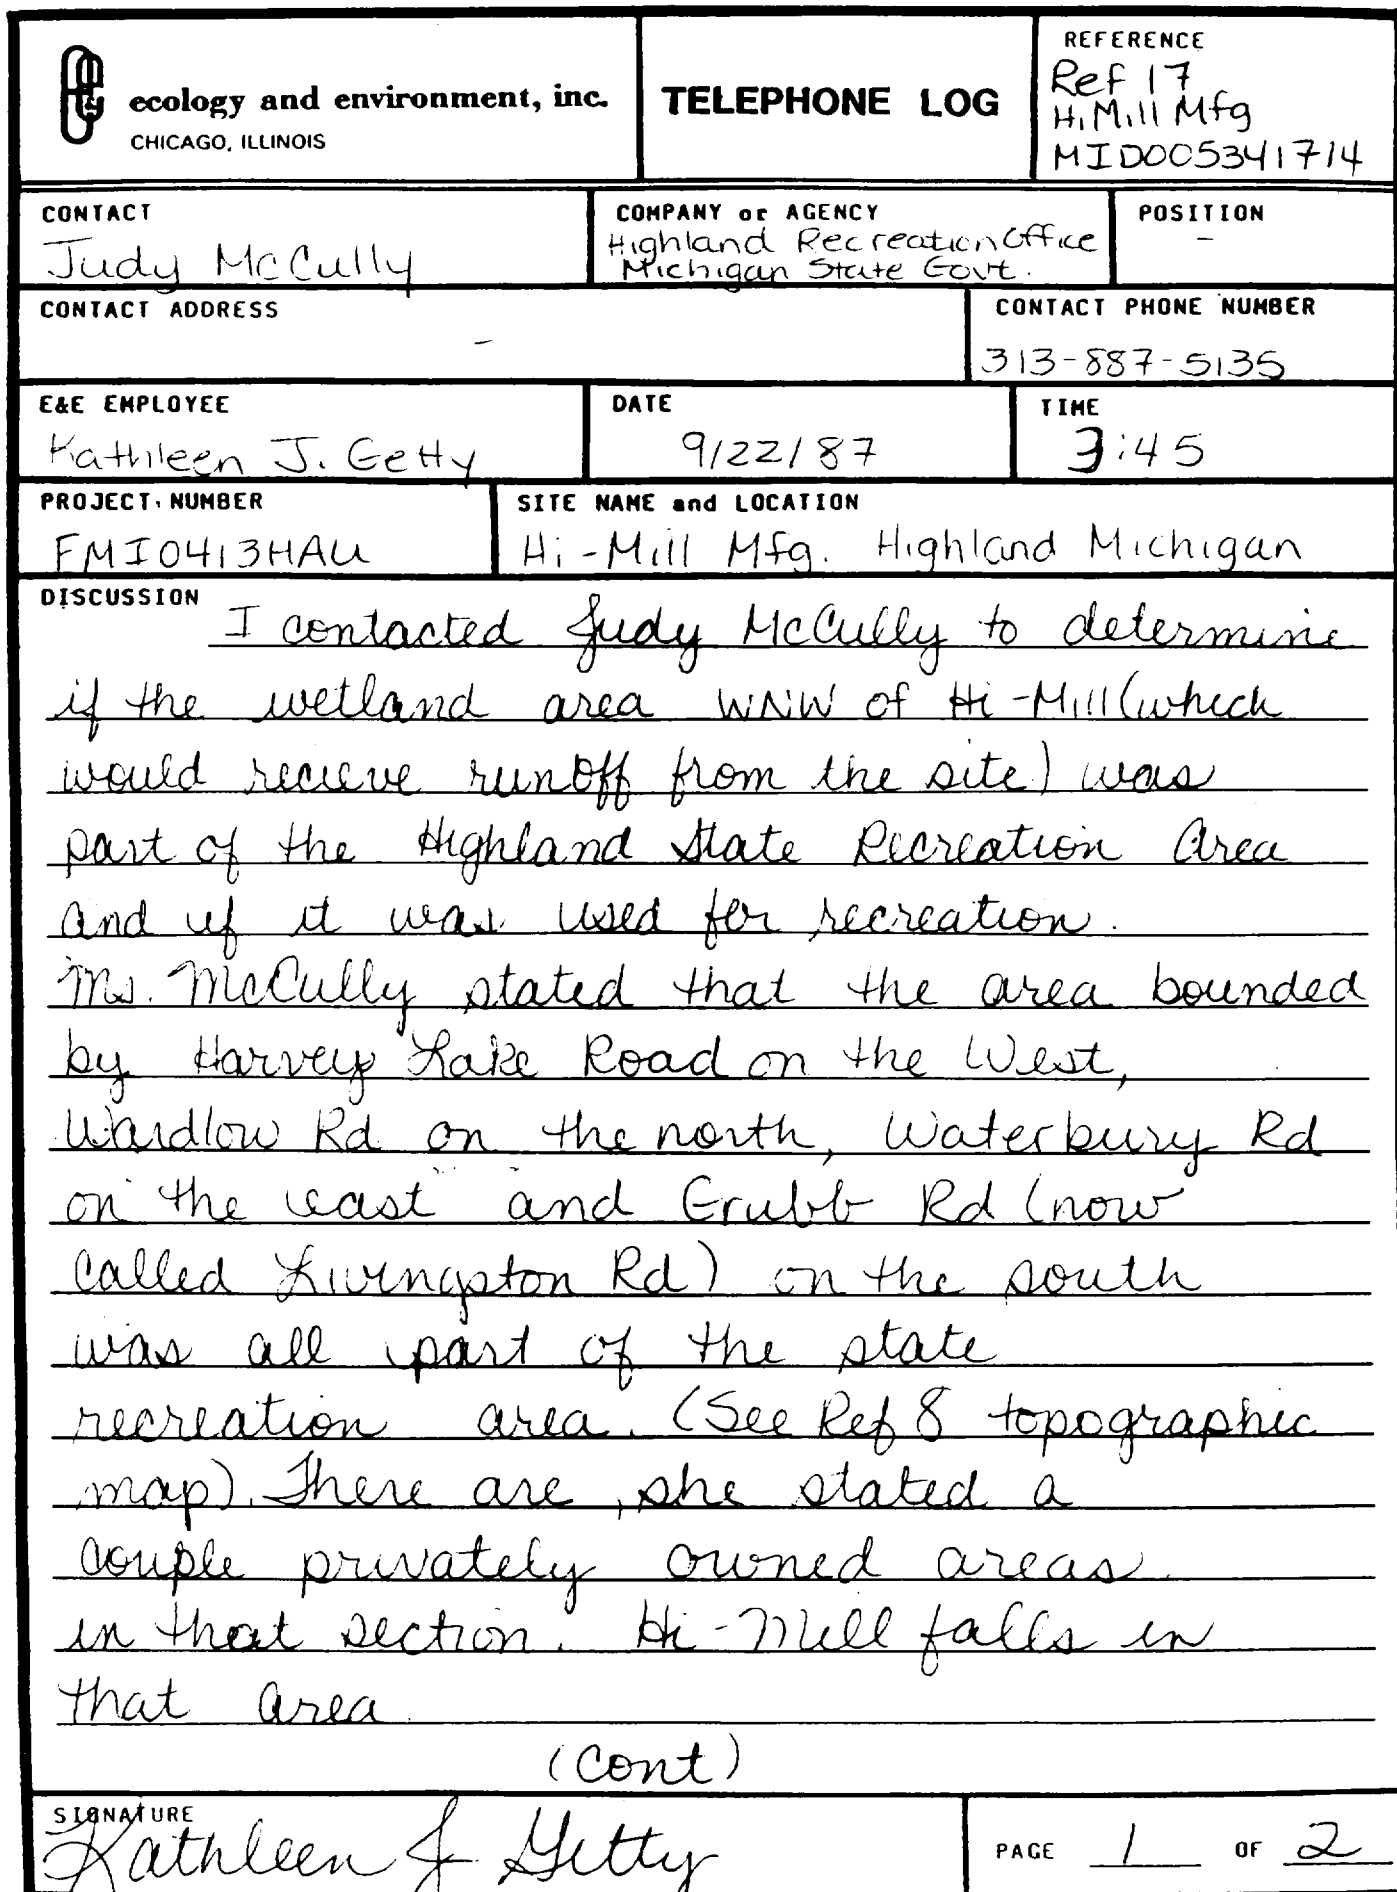 ecology and environment, inc.
CHICAGO, ILLINOIS
TELEPHONE LOG
REFERENCE
Ref 17
Hi Mill Mfg
MID005341714
CONTACT
Judy McCully
COMPANY or AGENCY
Highland Recreation Office
Michigan State Govt.
POSITION
-
CONTACT ADDRESS
-
CONTACT PHONE NUMBER
313-887-5135
E&E EMPLOYEE
Kathleen J. Getty
DATE
9/22/87
TIME
3:45
PROJECT NUMBER
FMI0413HAU
SITE NAME and LOCATION
Hi-Mill Mfg. Highland Michigan
DISCUSSION
I contacted Judy McCully to determine
if the wetland area WNW of Hi-Mill (which
would recieve runoff from the site) was
part of the Highland State Recreation Area
and if it was used for recreation.
Ms. McCully stated that the area bounded
by Harvey Lake Road on the West,
Wardlow Rd on the north, Waterbury Rd
on the east and Grubb Rd (now
called Livingston Rd) on the south
was all part of the state
recreation area. (See Ref 8 topographic
map). There are, she stated a
couple privately owned areas
in that section. Hi-Mill falls in
that area
(cont)
SIGNATURE
Kathleen J Getty
PAGE 1 OF 2